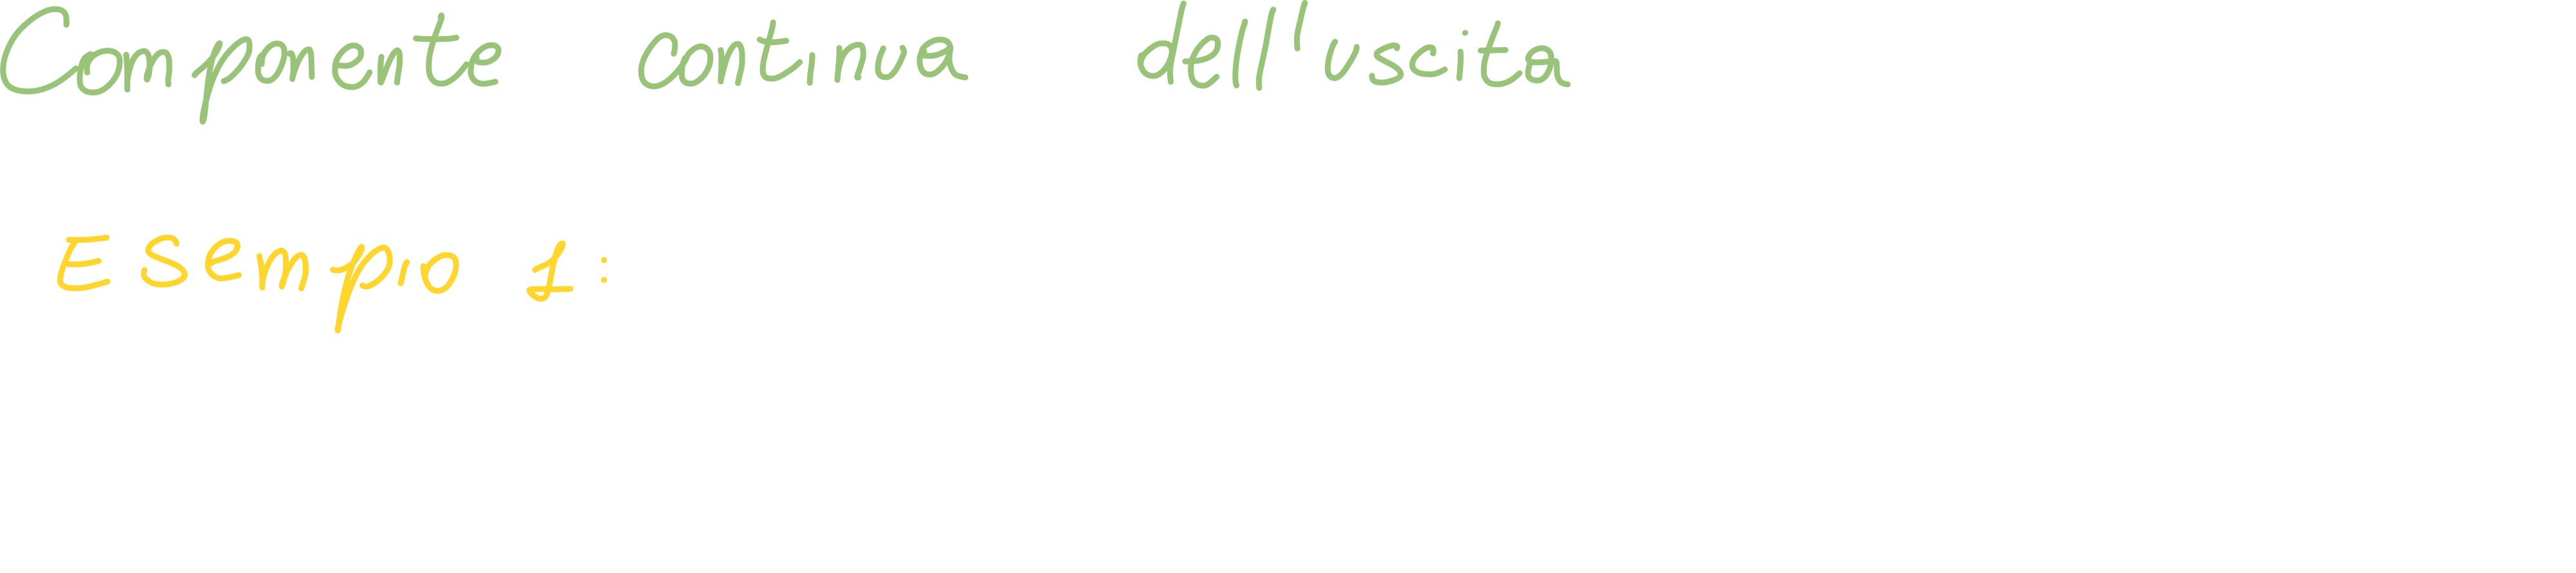 Componente continua dell'uscita
Esempio 1: